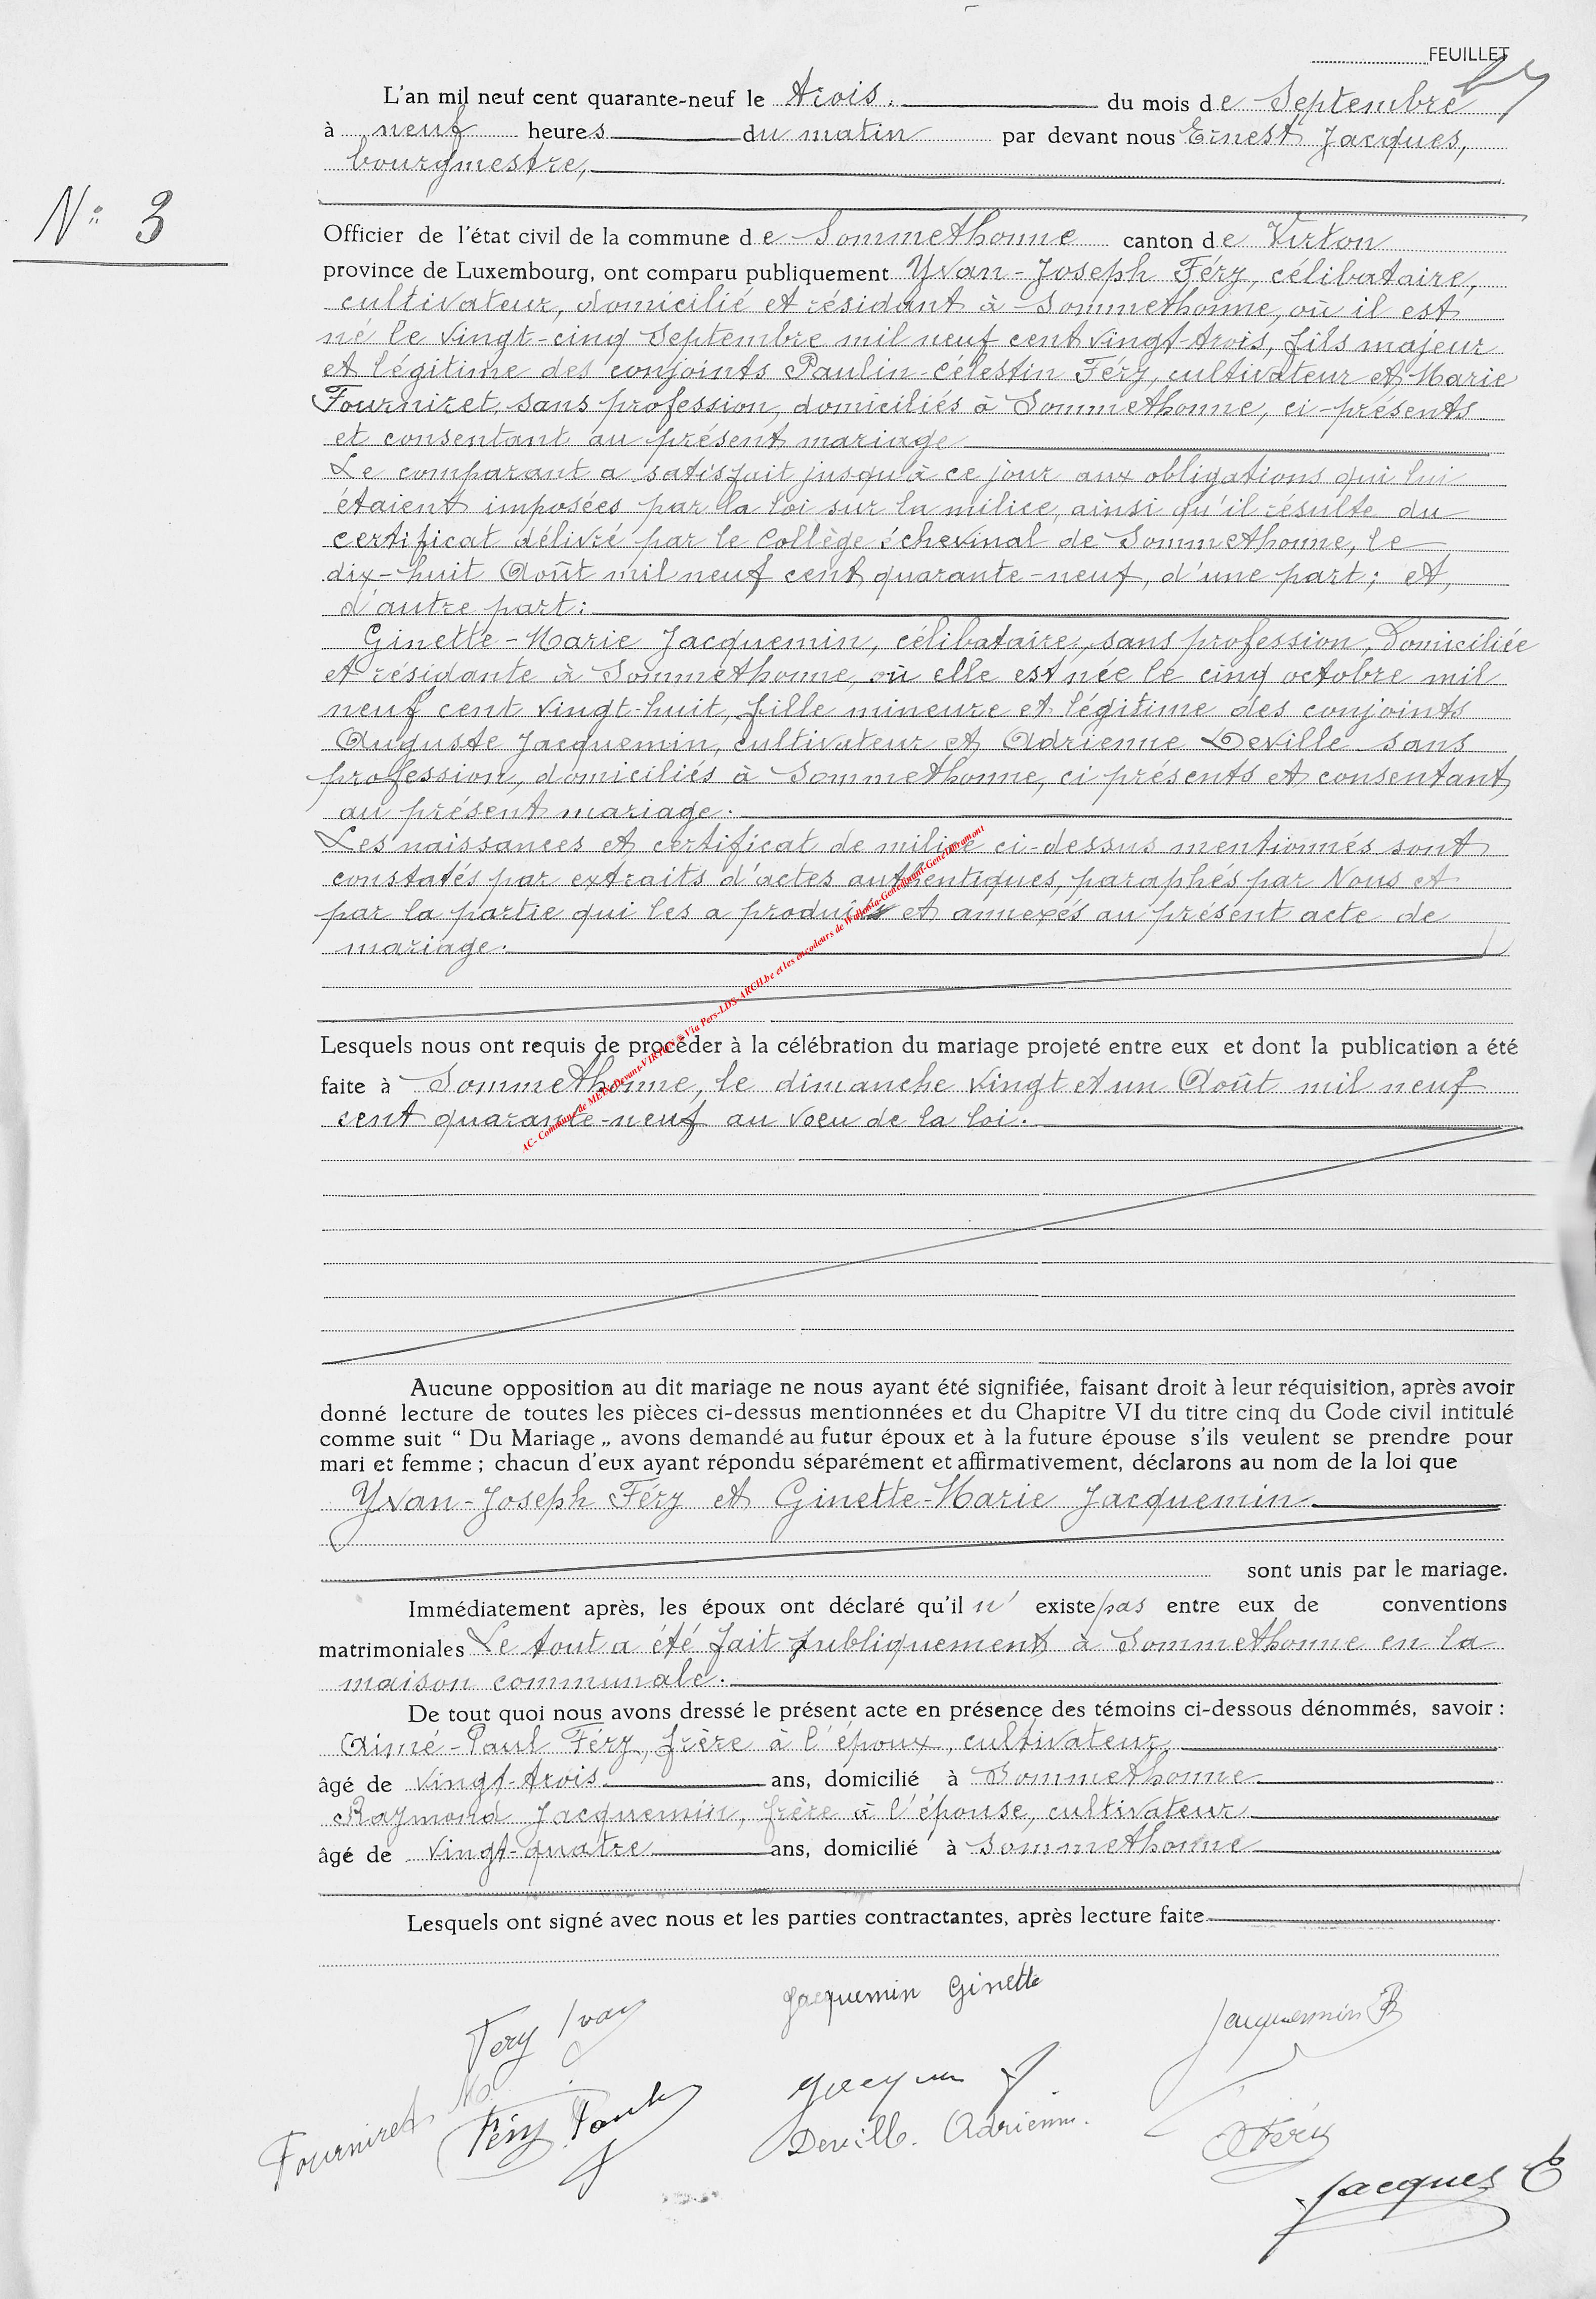 FEUILLET
L'an mil neuf cent quarante-neuf le trois. du mois de Septembre
à neuf heures du matin par devant nous Ernest Jacques,
bourgmestre,
N° 3
Officier de l'état civil de la commune de Sommethonne canton de Virton
province de Luxembourg, ont comparu publiquement Yvan-Joseph Féry, célibataire,
cultivateur, domicilié et résidant à Sommethonne, où il est
né le vingt-cinq Septembre mil neuf cent vingt-trois, fils majeur
et légitime des conjoints Paulin-Célestin Féry, cultivateur et Marie
Fourniret, sans profession, domiciliés à Sommethonne, ci-présents
et consentant au présent mariage
Le comparant a satisfait jusqu'à ce jour aux obligations qui lui
étaient imposées par la loi sur la milice, ainsi qu'il résulte du
certificat délivré par le Collège échevinal de Sommethonne, le
dix-huit Août mil neuf cent quarante-neuf, d'une part; et,
d'autre part:
Ginette-Marie Jacquemin, célibataire, sans profession, Domiciliée
et résidante à Sommethonne, où elle est née le cinq octobre mil
neuf cent vingt-huit, fille mineure et légitime des conjoints
Auguste Jacquemin, cultivateur et Adrienne Deville sans
profession, domiciliés à Sommethonne, ci présents et consentant
au présent mariage.
Les naissances et certificat de milice ci-dessus mentionnés sont
constatés par extraits d'actes authentiques, paraphés par Nous et
par la partie qui les a produits et annexés au présent acte de
mariage.
AC- Commune de MEIX-Devant-VIRTON © Via Pers-LDS-ARCH.be et les encodeurs de Wallonia-Genedinant-GeneLibramont
Lesquels nous ont requis de procéder à la célébration du mariage projeté entre eux et dont la publication a été
faite à Sommethonne, le dimanche vingt et un Août mil neuf
cent quarante-neuf au voeu de la loi.
Aucune opposition au dit mariage ne nous ayant été signifiée, faisant droit à leur réquisition, après avoir
donné lecture de toutes les pièces ci-dessus mentionnées et du Chapitre VI du titre cinq du Code civil intitulé
comme suit “ Du Mariage „ avons demandé au futur époux et à la future épouse s'ils veulent se prendre pour
mari et femme ; chacun d'eux ayant répondu séparément et affirmativement, déclarons au nom de la loi que
Yvan-Joseph Féry et Ginette-Marie Jacquemin
sont unis par le mariage.
Immédiatement après, les époux ont déclaré qu'il n' existe pas entre eux de conventions
matrimoniales Le tout a été fait publiquement à Sommethonne en la
maison communale.
De tout quoi nous avons dressé le présent acte en présence des témoins ci-dessous dénommés, savoir :
Aimé-Paul Féry, frère à l'époux, cultivateur,
âgé de vingt-trois ans, domicilié à Sommethonne
Raymond Jacquemin, frère à l'épouse, cultivateur
âgé de vingt-quatre ans, domicilié à Sommethonne
Lesquels ont signé avec nous et les parties contractantes, après lecture faite
Jacquemin Ginette
Fery Yvan
Jacquemin R
Fourniret Ma
Féry Paulin
Deville Adrienne
A Féry
Jacques E